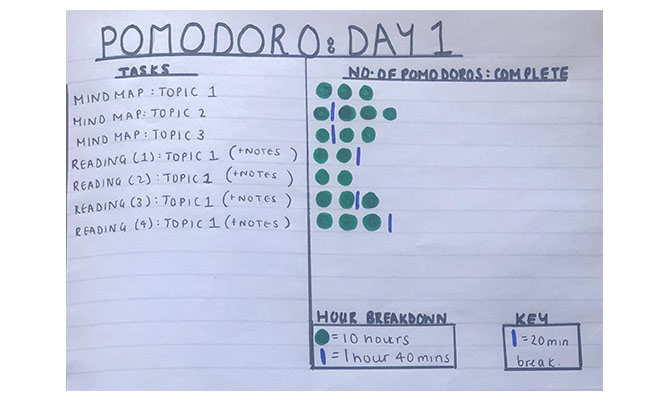 POMODORO: DAY 1
TASKS
NO. OF POMODOROS: COMPLETE
MIND MAP: TOPIC 1
MIND MAP: TOPIC 2
MIND MAP: TOPIC 3
READING (1): TOPIC 1 (+NOTES)
READING (2): TOPIC 1 (+NOTES)
READING (3): TOPIC 1 (+NOTES)
READING (4): TOPIC 1 (+NOTES)
HOUR BREAKDOWN
= 10 hours
= 1 hour 40 mins
KEY
= 20 min
break.